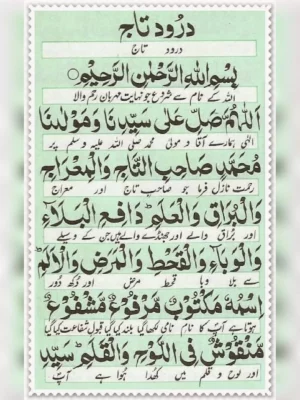 درود تاج
درود تاج
بِسْمِ اللهِ الرَّحْمٰنِ الرَّحِيْمِ
اللہ کے نام سے شروع جو نہایت مہربان رحم والا
اَللّٰهُمَّ صَلِّ عَلٰى سَيِّدِنَا وَمَوْلٰينَا
الٰہی ہمارے آقا و مولیٰ محمد صلی اللہ علیہ وسلم پر
مُحَمَّدٍ صَاحِبِ التَّاجِ وَالْمِعْرَاجِ
رحمت نازل فرما جو صاحب تاج اور معراج
وَالْبُرَاقِ وَالْعَلَمِ دَافِعِ الْبَلَآءِ
اور براق والے اور جھنڈے والے ہیں جن کے وسیلے
وَالْوَبَآءِ وَالْقَحْطِ وَالْمَرَضِ وَالْاَلَمِ
سے بلا وبا قحط مرض اور دکھ دور
اِسْمُهٗ مَكْتُوْبٌ مَّرْفُوْعٌ مَّشْفُوْعٌ
ہوتا ہے آپ کا نام نامی لکھا گیا بلند کیا گیا قبول شفاعت کیا گیا
مَّنْقُوْشٌ فِى اللَّوْحِ وَالْقَلَمِ سَيِّدِ
اور لوح و قلم میں کھدا ہوا ہے آپ